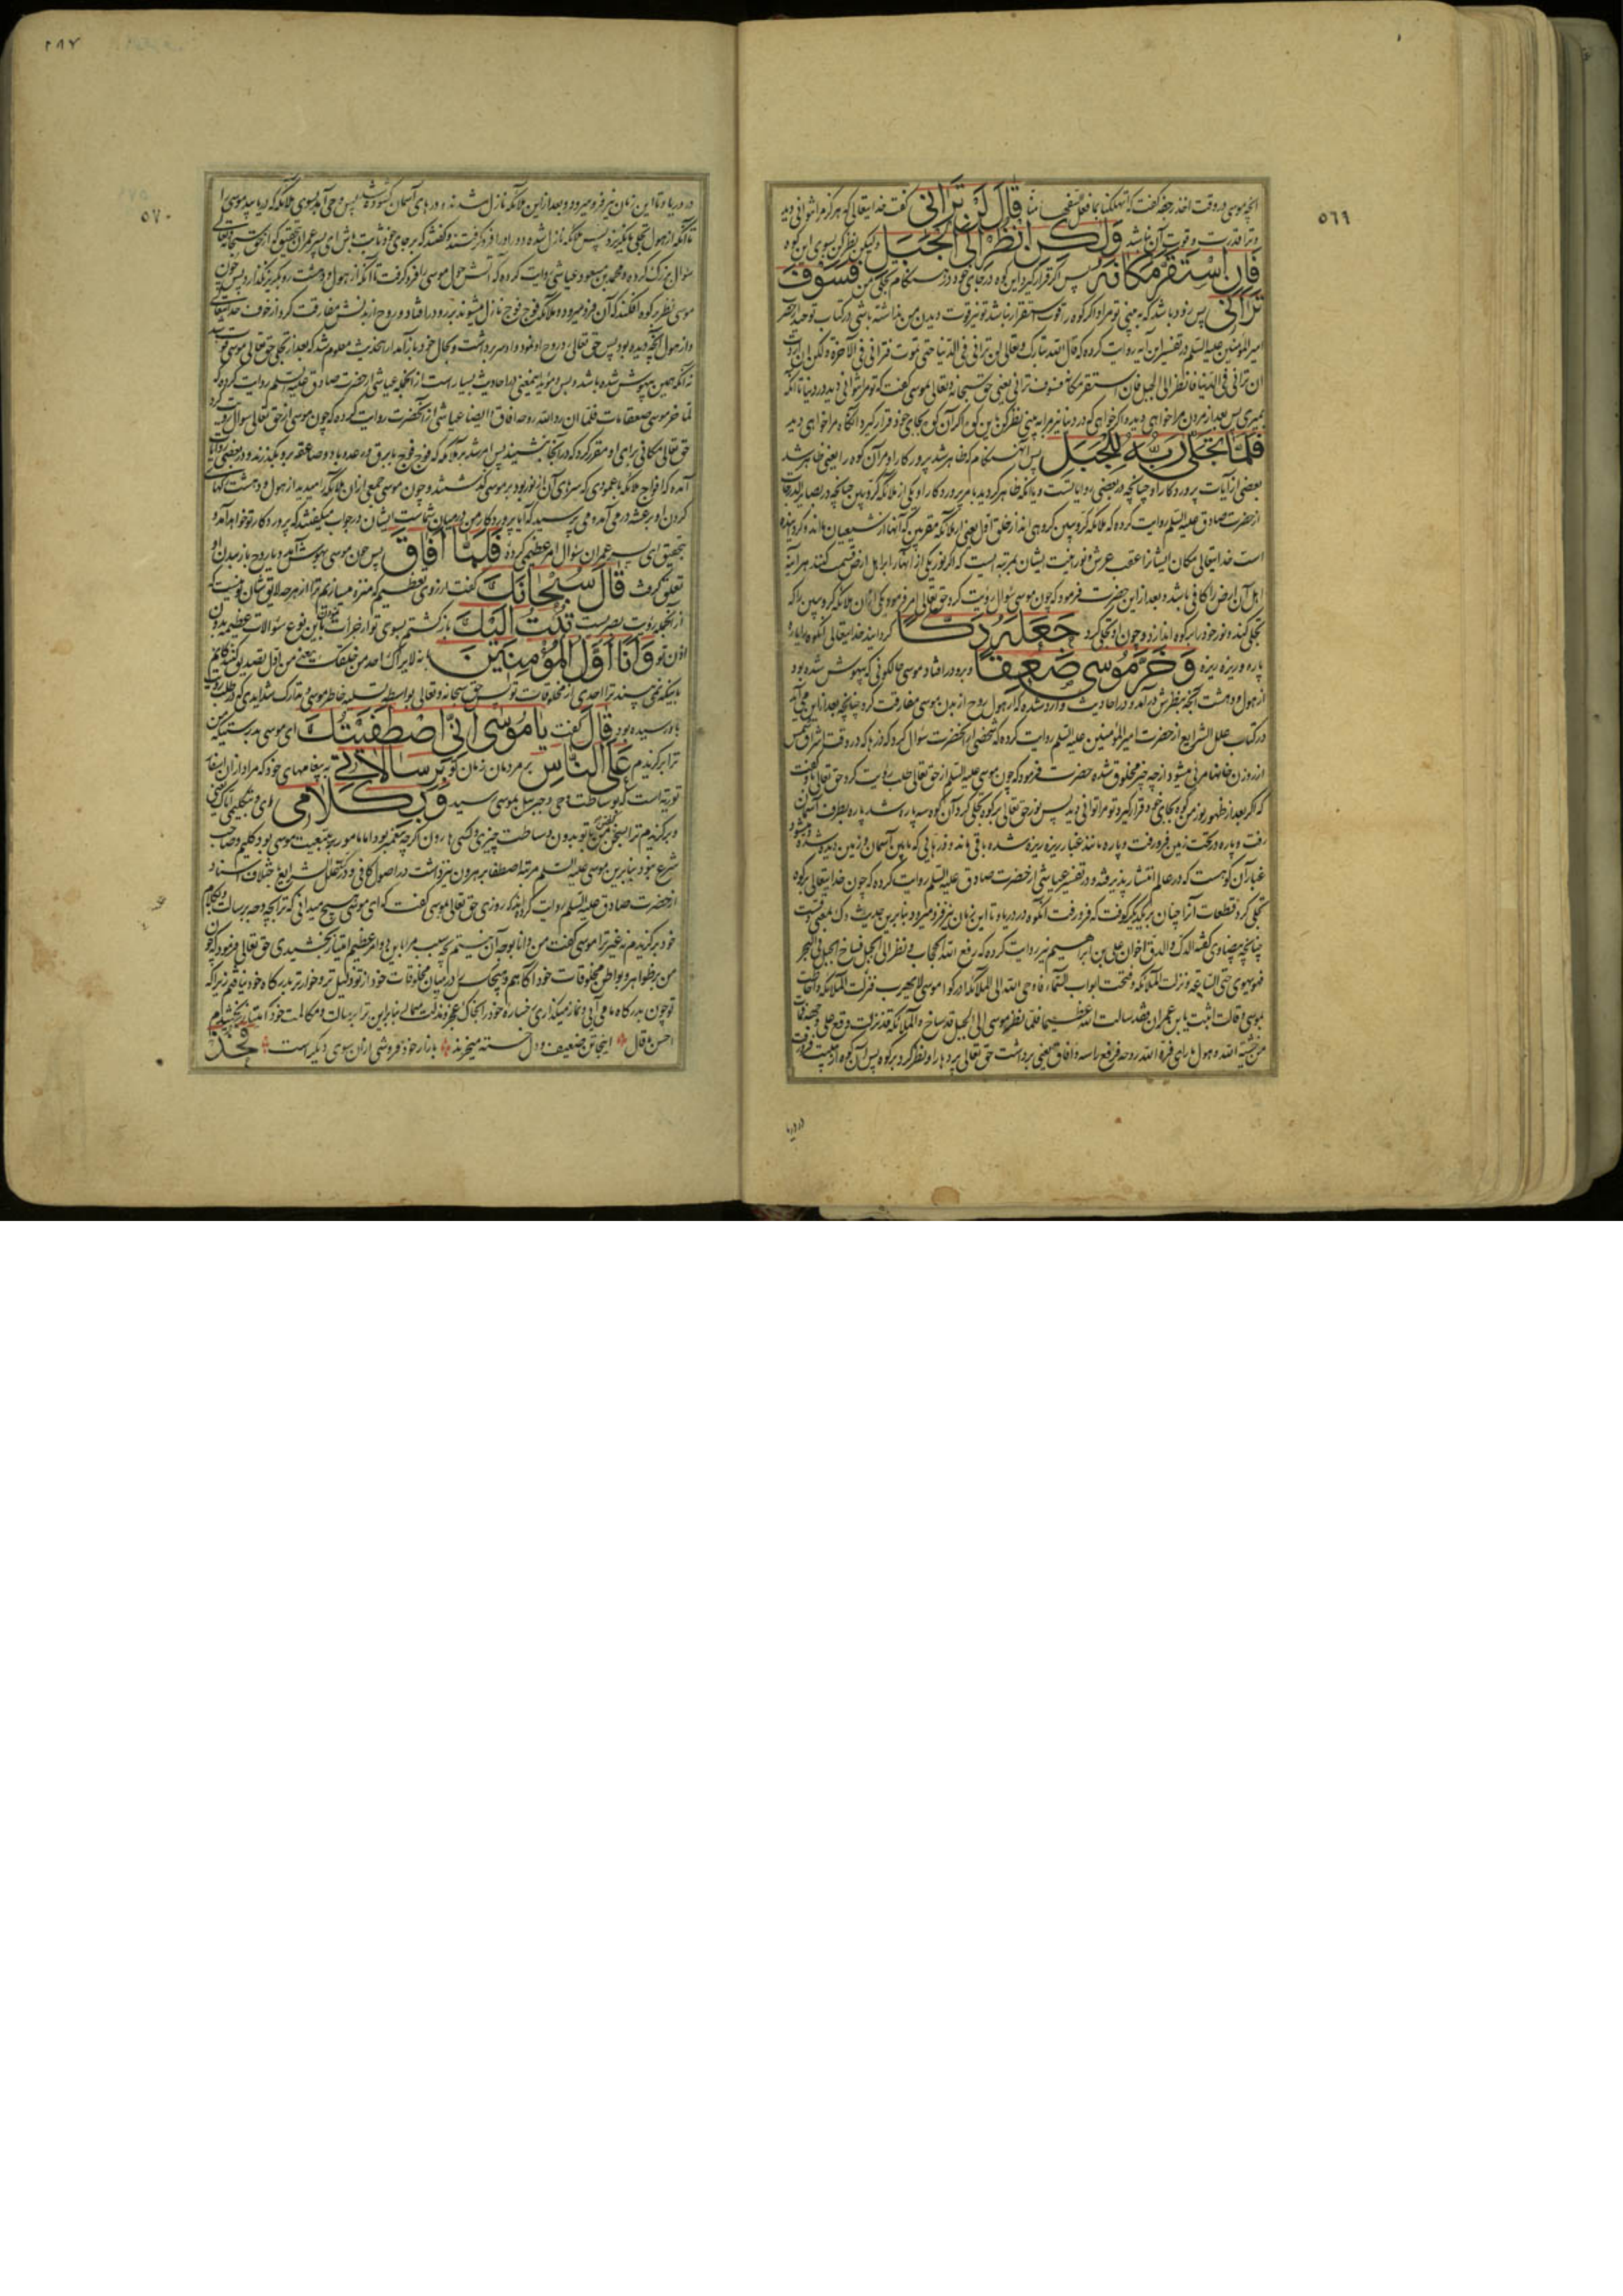 ٥٦٩
قَالَ لَنْ تَرَانِي گفت خدایتعالی که هرگز مرا نتوانی دید
وَلَكِنِ انْظُرْ إِلَى الْجَبَلِ ولیکن نظر کن بسوی این کوه
فَإِنِ اسْتَقَرَّ مَكَانَهُ پس اگر قرار گیرد این کوه در جای خود در هنگام تجلی من فَسَوْفَ
تَرَانِي پس زود باشد که به بینی تو مرا و اگر کوه را قوت استقرار نباشد تو نیز قوت دیدن من نداشته باشی و در کتاب توحید از حضرت
امیر المؤمنین علیه السلم در تفسیر این آیه روایت کرده که قال الله تبارک وتعالی لن ترانی فی الدنیا حتی تموت فترانی فی الآخرة ولکن ان اردت
ان ترانی فی الدنیا فانظر الی الجبل فان استقر مکانه فسوف ترانی یعنی حق سبحانه وتعالی بموسی گفت که تو مرا نتوانی دید در دنیا تا آنکه
بمیری پس بعد از مردن مرا خواهی دید و اگر خواهی که در دنیا نیز مرا به بینی نظر کن باین کوه اگر آن کوه بجای خود قرار گیرد آنگاه مرا خواهی دید
فَلَمَّا تَجَلَّى رَبُّهُ لِلْجَبَلِ پس آن هنگام که ظاهر شد پرورکار او مر آن کوه را یعنی ظاهر شد
بعضی از آیات پروردکار او چنانچه در بعضی روایاتست و یا آنکه ظاهر گردید بامر پروردکار او یکی از ملائکه کروبین چنانچه در بصایر الدرجات
از حضرت صادق علیه السلم روایت کرده که ملائکه کروبین گروهی اند از خلق اول یعنی از ملائکه مقربین که آنها از شیعیان ما اند
است خدایتعالی مکان ایشانرا عقب عرش و نورانیت ایشان بمرتبه ایست که اگر نور یکی از آنها را بر اهل ارض قسمت کنند هر آینه
اهل آن ارض را کافی باشد و بعد از این حضرت فرمود که چون موسی سئوال رؤیت کرد حق تعالی امر فرمود یکی از آن ملائکه کروبین را که
تجلی کند و نور خود را بر کوه اندازد و چون او تجلی کرد جَعَلَهُ دَكًّا گردانید خدایتعالی آنکوه را پاره
پاره و ریزه ریزه وَخَرَّ مُوسَى صَعِقًا و برو در افتاد موسی حالکونی که بیهوش شده بود
از هول و دهشت آنچه بنظرش در آمد و در احادیث وارد شده که از هول روح از بدن موسی مفارقت کرد چنانچه بعد از این می آید
در کتاب علل الشرایع از حضرت امیر المؤمنین علیه السلم روایت کرده که شخصی از آنحضرت سؤال کرد که ذرها که در وقت اشراق شمس
از روزن خانها مرئی میشود از چه چیز مخلوق شده حضرت فرمود که چون موسی علیه السلم از حق تعالی طلب رؤیت کرد حق تعالی باو گفت
که اگر بعد از ظهور نور من کوه بجای خود قرار گیرد تو مرا توانی دید پس نور حق تعالی بر کوه تجلی کرد و آن کوه سه پاره شد پاره بطرف آسمان
رفت و پاره در تحت زمین فرو رفت و پاره مانند غبار ریزه ریزه شده باقی ماند و ذرهائی که مابین آسمان و زمین دیده میشود
غبار آن کوهست که در عالم انتشار پذیرفته و در تفسیر عیاشی از حضرت صادق علیه السلم روایت کرده که چون خدایتعالی بر کوه
تجلی کرد قطعات آنرا چنان بر یکدیگر کوفت که فرو رفت آنکوه در دریا و تا این زمان نیز فرو میرود و بنا برین حدیث دک بمعنی دق است
چنانچه بیضاوی گفته الدک والدق اخوان علی بن ابراهیم نیز روایت کرده که رفع الله الحجاب ونظر الی الجبل فساخ الجبل فی البحر
فهو یهوی حتی الساعة ونزلت الملائکة وفتحت ابواب السماء فاوحی الله الی الملائکة ادرکوا موسی لا یهرب فنزلت الملائکة واحاطت
بموسی وقالت اثبت یا بن عمران فقد سالت الله عظیما فلما نظر موسی الی الجبل قد ساخ والملائکة قد نزلت وقع علی وجهه فمات
من خشیة الله وهول ما رای فرد الله روحه فرفع راسه وافاق یعنی برداشت حق تعالی پردها را و نظر کرد بر کوه پس آن کوه از هیبت فرو رفت
در دریا
٥٧٠
در دریا و تا این زمان نیز فرو میرود و بعد از این ملائکه نازل شدند و درهای آسمان گشوده شد پس وحی آمد بسوی ملائکه که دریابید موسی را
تا آنکه از هول تجلی نگریزد پس ملائکه نازل شده دور او را فرو گرفتند و گفتند که بر جای خود ثابت باش ای پسر عمران بتحقیق که از حق سبحانه وتعالی
سئوال بزرگ کرده و محمد بن مسعود عیاشی روایت کرده که آتش حول موسی را فرو گرفت تا آنکه از هول و دهشت رو بگریز نگذارد پس چون
موسی نظر بر کوه افکند که آن فرو میرود و ملائکه فوج فوج نازل میشوند برو در افتاد و روح از بدنش مفارقت کرد از خوف خدایتعالی
و از هول آنچه دیده بود پس حق تعالی روح او را باو رد نمود و او سر برداشت و بحال خود باز آمد از این حدیث معلوم شد که بعد از تجلی حق تعالی موسی فوت شد
نه آنکه همین بیهوش شده باشد و بس و مؤید این معنی در احادیث بسیار است از آنجمله عیاشی از حضرت صادق علیه السلم روایت کرده که
لما خر موسی صعقا مات فلما ان رد الله روحه افاق و ایضا عیاشی از آنحضرت روایت کرده که چون موسی از حق تعالی سؤال رؤیت کرد
حق تعالی مکانی برای او مقرر کرد که در آنجا بنشیند پس امر شد بر ملائکه که فوج فوج با برق و رعد و باد و صاعقه برو بگذرند و در بعضی روایات
آمده که افواج ملائکه با عمودی که سرهای آن از نور بود بر موسی گذشتند و چون موسی جمعی از آن ملائکه را میدید از هول و دهشت
گردن او برعشه در می آمد و می پرسید که آیا پروردکار من در میان شماست ایشان در جواب میگفتند که پروردکار تو خواهد آمد و
بتحقیق ای پسر عمران سئوال امر عظیمی کرده فَلَمَّا أَفَاقَ پس چون موسی بهوش آمد و یا روح باز ببدن او
تعلق گرفت قَالَ سُبْحَانَكَ گفت از روی تعظیم که منزه میسازم ترا از هر چه لایق شان تو نیست که
از آنجمله رؤیت بصریست تُبْتُ إِلَيْكَ باز گشتم بسوی تو از جرأت نمودن باین نوع سئوالات عظیمه بدون
اذن تو وَأَنَا أَوَّلُ الْمُؤْمِنِينَ بانه لا یراک احد من خلقک یعنی من اول تصدیق کنندکانم
باینکه نمی بیند ترا احدی از مخلوقات تو پس حق سبحانه وتعالی بواسطه تسلیه خاطر موسی و تدارک شدایدی که در طلب رؤیت
باو رسیده بود قَالَ گفت يَا مُوسَى إِنِّي اصْطَفَيْتُكَ ای موسی بدرستیکه من
ترا برگزیدم عَلَى النَّاسِ بر مردمان زمان تو بِرِسَالَاتِي به پیغامهای خود که مراد از آن اسفار
توریة است که بوساطت وحی و جبرئیل بموسی رسید وَبِكَلَامِي ای وبتکلیمی ایاک یعنی
و برگزیدم ترا بسخن گفتن من با تو بدون وساطت چیزی و کسی و هارون اگرچه پیغمبر بود اما مامور به تبعیت موسی بود و کلیم و صاحب
شرع نبود بنابرین موسی علیه السلم مرتبه اصطفا بر هرون نیز داشت در اصول کافی و در علل الشرایع باختلاف اسناد
از حضرت صادق علیه السلم روایت کرده اند که روزی حق تعالی بموسی گفت که ای موسی هیچ میدانی که ترا بچه وجه برسالت و بکلام
خود برگزیدم نه غیر ترا موسی گفت من دانا بوجه آن نیستم بچه سبب مرا باین دو امر عظیم امتیاز بخشیدی حق تعالی فرمود که چون
من بر ظواهر و بواطن مخلوقات خود آگاهم و هیچکس در میان مخلوقات خود از تو ذلیل تر و خوارتر بدرگاه خود نیافتم زیرا که
تو چون بدرگاه ما می آیی و نماز میگذاری رخساره خود را بخاک عجز و مذلت میمالی بنابراین ترا برسالت و مکالمت خود امتیاز بخشیدم
احسن ما قال اینجا تن ضعیف و دل خسته میخرند بازار خود فروشی از آن سوی دیگر است فَخُذْ